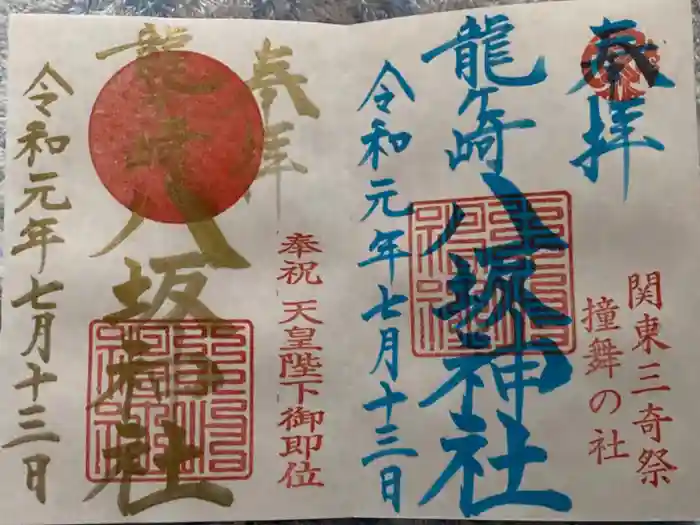 奉拝
関東三奇祭
撞舞の社
龍ケ崎八坂神社
令和元年七月十三日
奉拝
奉祝 天皇陛下御即位
龍ケ崎八坂神社
令和元年七月十三日